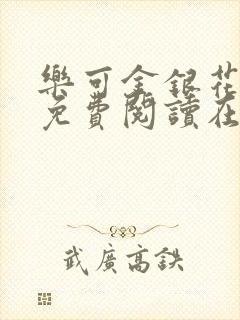 樂可金銀花
免費閱讀在
武廣高鉄